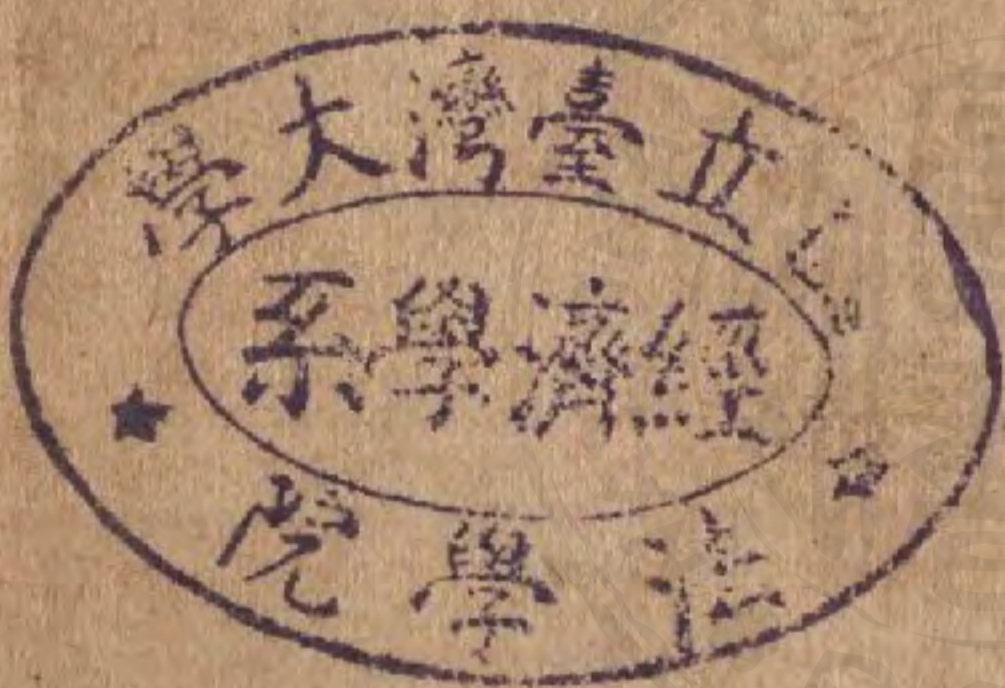 立臺灣大學
經濟學系
法學院